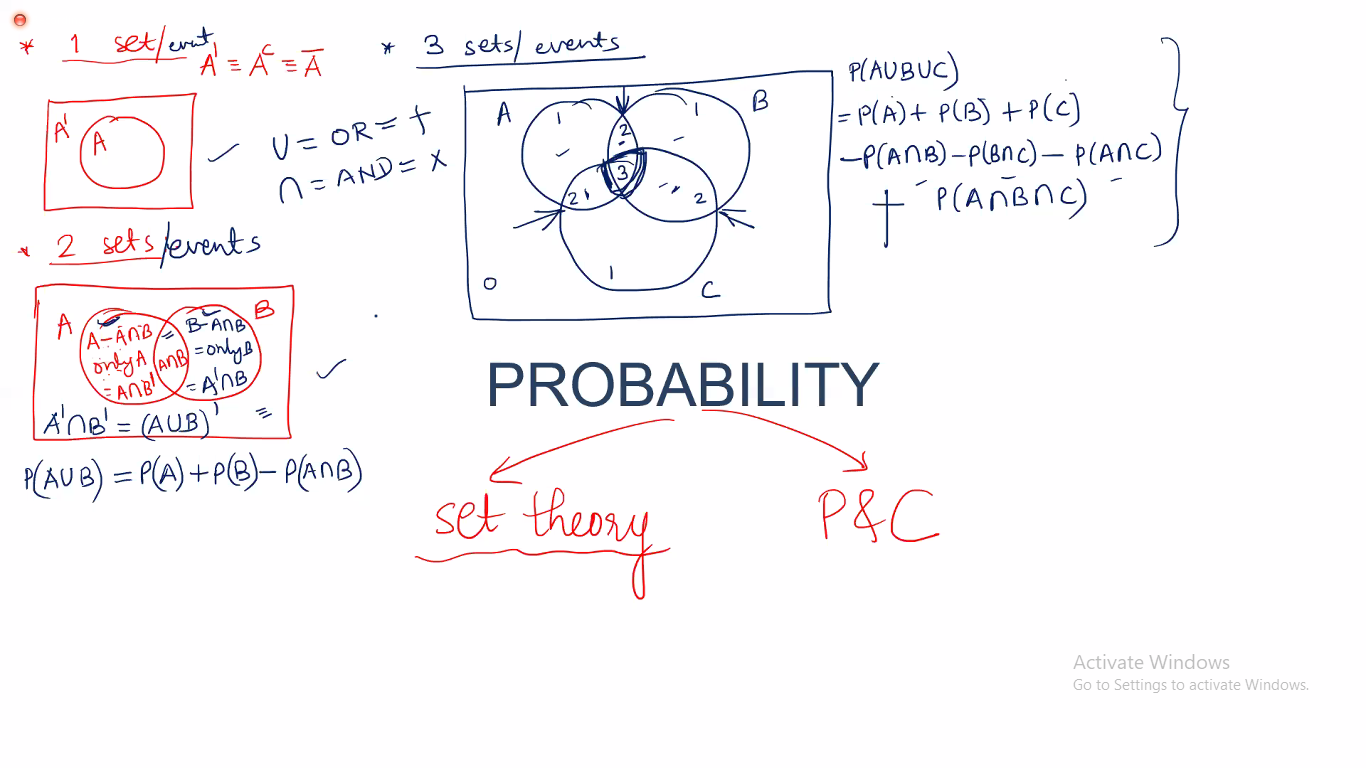 * 1 set/event
A' ≡ Aᶜ ≡ A̅
A'
A
∪ = OR = +
∩ = AND = ×
* 2 sets/events
A
B
A - A∩B
only A
= A∩B'
A∩B
= B - A∩B
= only B
= A'∩B
A'∩B' = (A∪B)'
P(A∪B) = P(A) + P(B) - P(A∩B)
* 3 sets/events
A
B
1
1
2
3
2
2
1
0
C
P(A∪B∪C)
= P(A) + P(B) + P(C)
- P(A∩B) - P(B∩C) - P(A∩C)
+ P(A∩B∩C)
PROBABILITY
set theory
P&C
Activate Windows
Go to Settings to activate Windows.